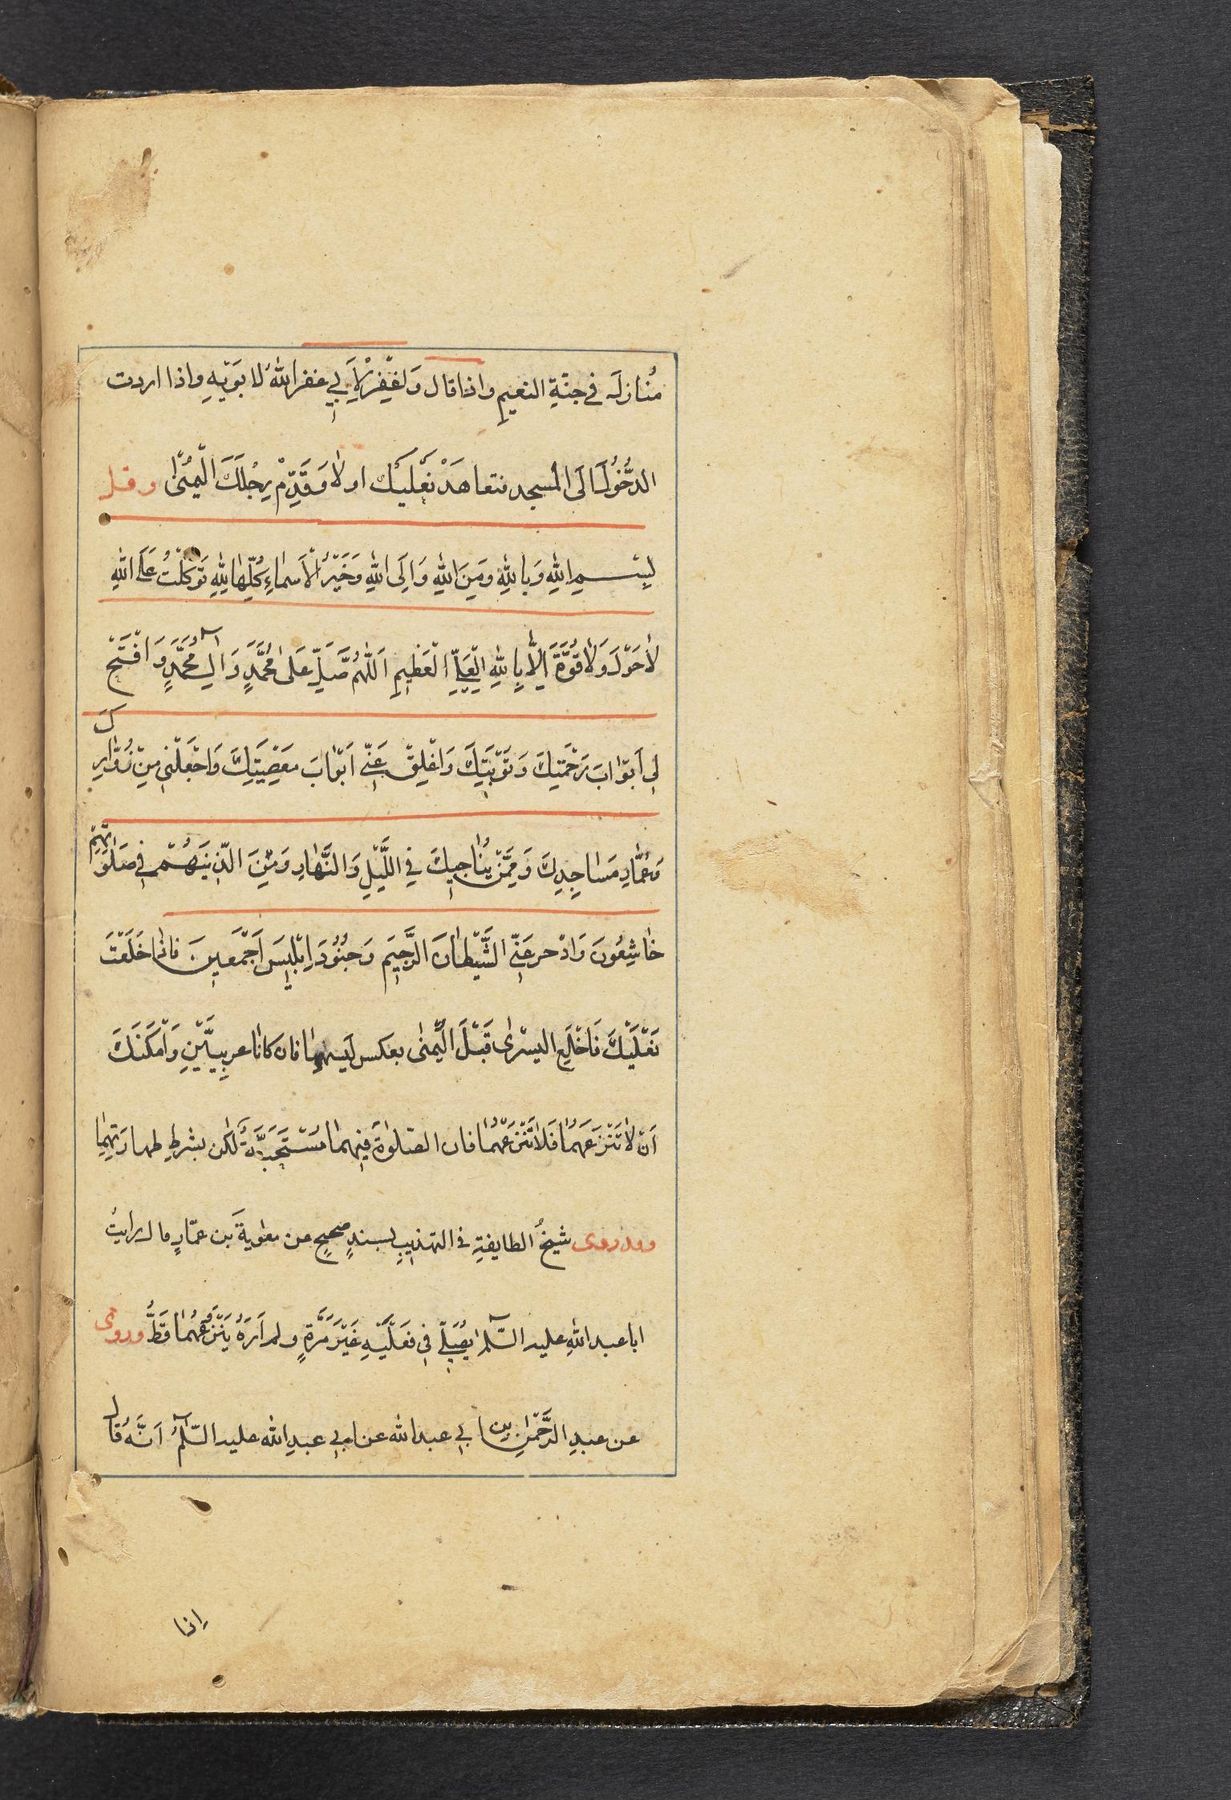 مُنازلَه فى جنّةِ النعيمِ واذا قال وَاغْفِرْ لِاَبِى غفر اللهُ لابوَيْهِ واذا اردت
الدُّخُولَ اِلَى المسجد فتعاهَدْ نَعْلَيْكَ اولاً وَقَدِّمْ رِجْلَكَ الْيُمْنٰى وقل
بِسْمِ اللهِ وَبِاللهِ وَمِنَ اللهِ وَاِلَى اللهِ وَخَيْرُ الْاَسْماءِ كُلِّهَا لِلّٰهِ تَوَكَّلْتُ عَلَى اللهِ
لاٰحَوْلَ وَلاٰقُوَّةَ اِلّاٰ بِاللهِ الْعَلِىِّ الْعَظِيمِ اَللّٰهُمَّ صَلِّ عَلىٰ مُحَمَّدٍ وَآلِ مُحَمَّدٍ وَافْتَحْ
لِى اَبْوٰابَ رَحْمَتِكَ وَتَوْبَتِكَ وَاَغْلِقْ عَنِّى اَبْوٰابَ مَعْصِيَتِكَ وَاجْعَلْنِى مِنْ زُوّٰارِكَ
وَعُمّٰارِ مَسٰاجِدِكَ وَمِمَّنْ يُنٰاجِيكَ فِى اللَّيْلِ وَالنَّهٰارِ وَمِنَ الَّذِينَ هُمْ فِى صَلَوٰتِهِمْ
خٰاشِعُونَ وَادْحَرْ عَنِّى الشَّيْطٰانَ الرَّجِيمَ وَجُنُودَ اِبْلِيسَ اَجْمَعِينَ فاذا خَلَعْتَ
نَعْلَيْكَ فَاخْلَعِ اليسْرٰى قَبْلَ الْيُمْنٰى بعكس لُبْسِهِمٰا فان كانا عربِيَّيْنِ وَاَمْكَنَكَ
اَنْ لاٰ تَنْزَعَهُمٰا فَلاٰ تَنْزَعْهُمٰا فان الصلوٰةَ فيهِمٰا مُسْتَحَبَّةٌ لٰكن بشرطِ طهارَتِهِمٰا
وقد روى شيخُ الطايفةِ فى التهذيبِ بسندٍ صحيحٍ عن معٰويةَ بن عمّارٍ قال رايتُ
ابا عبد اللهِ عليه السّلٰم يُصَلِّى فى نَعْلَيْهِ غَيْرَ مَرَّةٍ ولم اَرَهُ يَنْزَعُهُمٰا قَطُّ وروى
عن عبدِ الرَّحْمٰنِ بن ابى عبد الله عن ابى عبدِ الله عليه السّلٰمُ اَنَّهُ قال
اذا